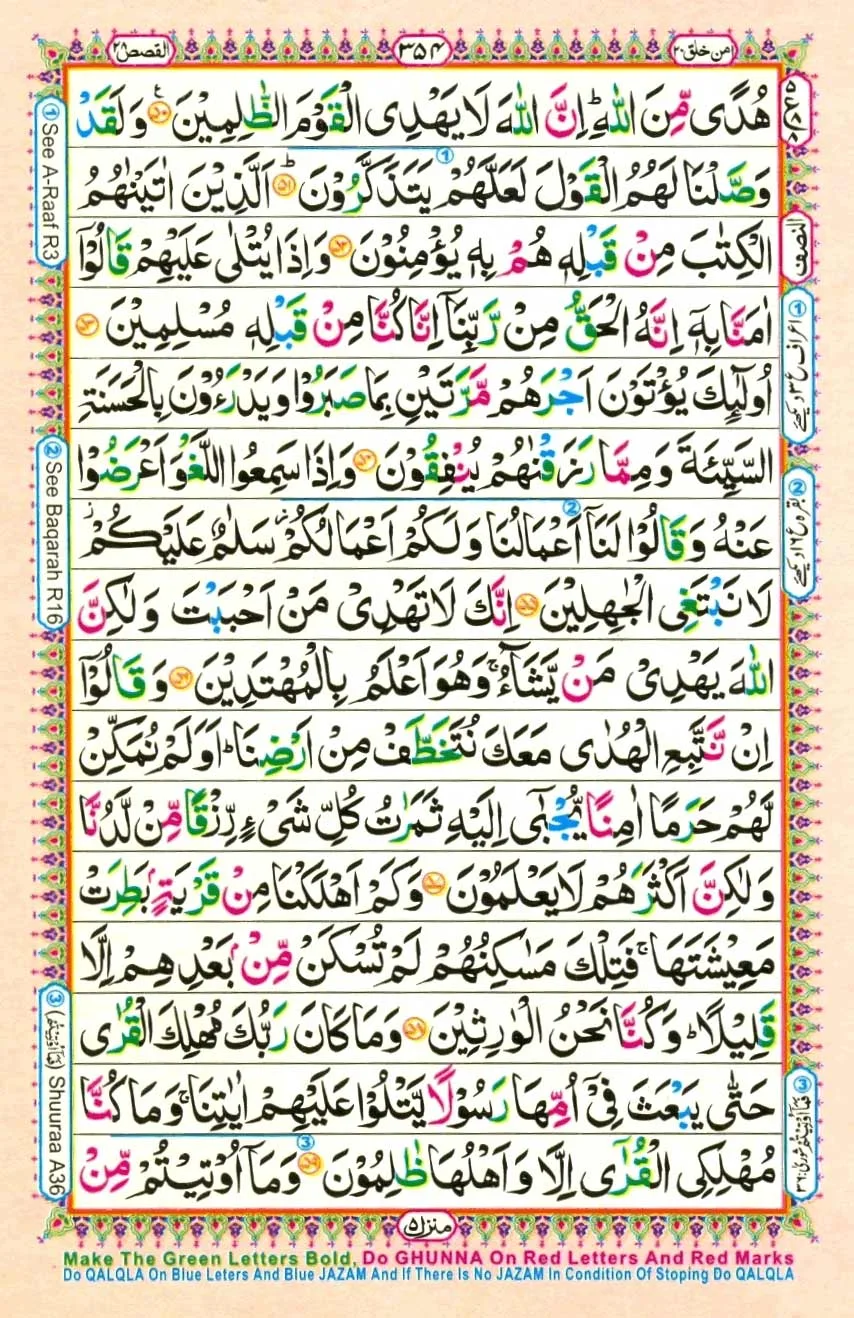 القصص ۲۸
۳۵۴
امن خلق ۲۰
هُدًى مِّنَ اللّٰهِ ؕ اِنَّ اللّٰهَ لَا يَهْدِى الْقَوْمَ الظّٰلِمِيْنَ ۵۰ وَ لَقَدْ
وَصَّلْنَا لَهُمُ الْقَوْلَ لَعَلَّهُمْ يَتَذَكَّرُوْنَ ۵۱ ؕ اَلَّذِيْنَ اٰتَيْنٰهُمُ
الْكِتٰبَ مِنْ قَبْلِهٖ هُمْ بِهٖ يُؤْمِنُوْنَ ۵۲ وَاِذَا يُتْلٰى عَلَيْهِمْ قَالُوْٓا
اٰمَنَّا بِهٖٓ اِنَّهُ الْحَقُّ مِنْ رَّبِّنَآ اِنَّا كُنَّا مِنْ قَبْلِهٖ مُسْلِمِيْنَ ۵۳
اُولٰٓئِكَ يُؤْتَوْنَ اَجْرَهُمْ مَّرَّتَيْنِ بِمَا صَبَرُوْا وَيَدْرَءُوْنَ بِالْحَسَنَةِ
السَّيِّئَةَ وَمِمَّا رَزَقْنٰهُمْ يُنْفِقُوْنَ ۵۴ وَاِذَا سَمِعُوا اللَّغْوَ اَعْرَضُوْا
عَنْهُ وَ قَالُوْا لَنَآ اَعْمَالُنَا وَلَكُمْ اَعْمَالُكُمْ سَلٰمٌ عَلَيْكُمْ
لَا نَبْتَغِى الْجٰهِلِيْنَ ۵۵ اِنَّكَ لَا تَهْدِىْ مَنْ اَحْبَبْتَ وَلٰكِنَّ
اللّٰهَ يَهْدِىْ مَنْ يَّشَآءُ ۚ وَهُوَ اَعْلَمُ بِالْمُهْتَدِيْنَ ۵۶ وَ قَالُوْٓا
اِنْ نَّتَّبِعِ الْهُدٰى مَعَكَ نُتَخَطَّفْ مِنْ اَرْضِنَا ؕ اَوَلَمْ نُمَكِّنْ
لَّهُمْ حَرَمًا اٰمِنًا يُّجْبٰٓى اِلَيْهِ ثَمَرٰتُ كُلِّ شَىْءٍ رِّزْقًا مِّنْ لَّدُنَّا
وَلٰكِنَّ اَكْثَرَهُمْ لَا يَعْلَمُوْنَ ۵۷ وَكَمْ اَهْلَكْنَا مِنْ قَرْيَةٍۭ بَطِرَتْ
مَعِيْشَتَهَا ۚ فَتِلْكَ مَسٰكِنُهُمْ لَمْ تُسْكَنْ مِّنْۢ بَعْدِهِمْ اِلَّا
قَلِيْلًا ؕ وَكُنَّا نَحْنُ الْوٰرِثِيْنَ ۵۸ وَمَا كَانَ رَبُّكَ مُهْلِكَ الْقُرٰى
حَتّٰى يَبْعَثَ فِىْٓ اُمِّهَا رَسُوْلًا يَّتْلُوْا عَلَيْهِمْ اٰيٰتِنَا ۚ وَمَا كُنَّا
مُهْلِكِى الْقُرٰٓى اِلَّا وَاَهْلُهَا ظٰلِمُوْنَ ۵۹ وَمَآ اُوْتِيْتُمْ مِّنْ
النصف
① اعراف ع ۳ دیکھئے
② بقرہ ع ۱۶ دیکھئے
① See A-Raaf R3
② See Baqarah R16
③ (فَمَآ اُوْتِيْتُمْ) Shuuraa A36
③ فَمَآ اُوْتِيْتُمْ شوریٰ: ۳۶
منزل ۵
Make The Green Letters Bold, Do GHUNNA On Red Letters And Red Marks
Do QALQLA On Blue Leters And Blue JAZAM And If There Is No JAZAM In Condition Of Stoping Do QALQLA